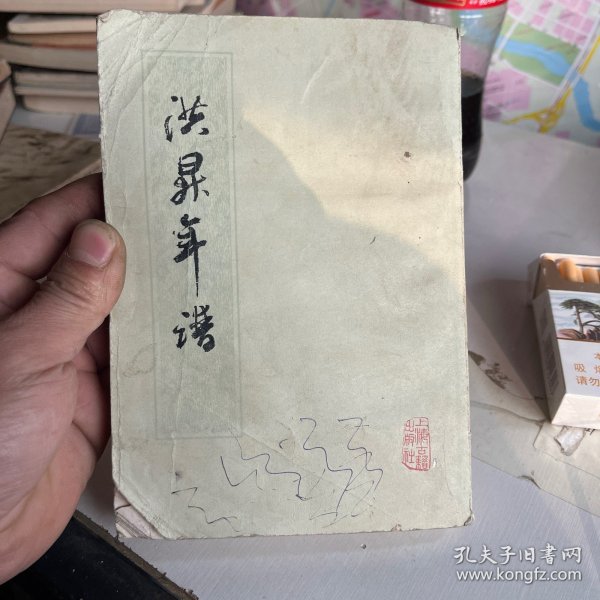 洪昇年谱
上海古籍
出版社
吸烟
请勿
孔夫子旧书网
www.kongfz.com